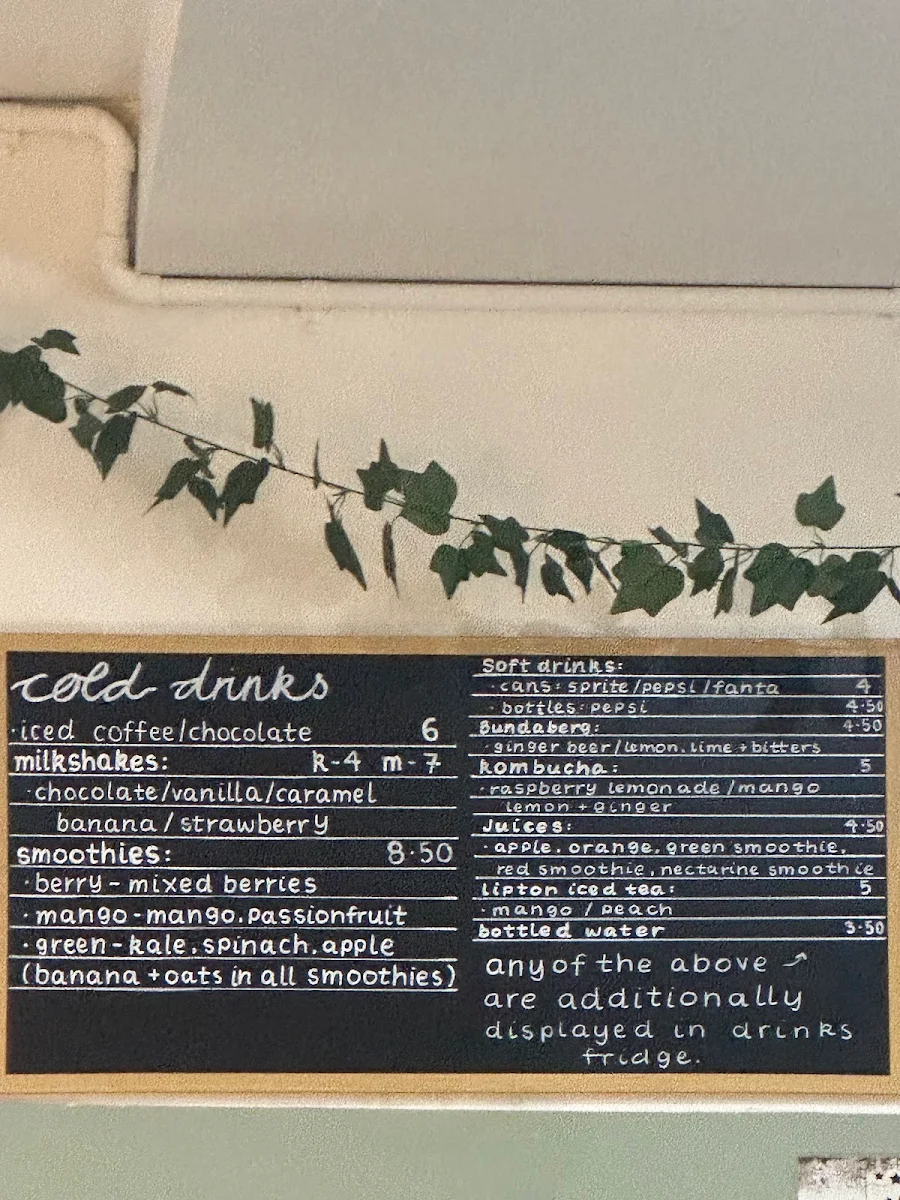 cold drinks
·iced coffee/chocolate 6
milkshakes: k-4 m-7
·chocolate/vanilla/caramel
banana/strawberry
smoothies: 8·50
·berry-mixed berries
·mango-mango.passionfruit
·green-kale.spinach.apple
(banana+oats in all smoothies)
Soft drinks:
·cans: sprite/pepsi/fanta 4
·bottles: pepsi 4·50
Bundaberg: 4·50
·ginger beer/lemon.lime+bitters
kombucha: 5
·raspberry lemonade/mango
lemon+ginger
Juices: 4·50
·apple.orange.green smoothie.
red smoothie.nectarine smoothie
lipton iced tea: 5
·mango / peach
bottled water 3·50
any of the above ↗
are additionally
displayed in drinks
fridge.